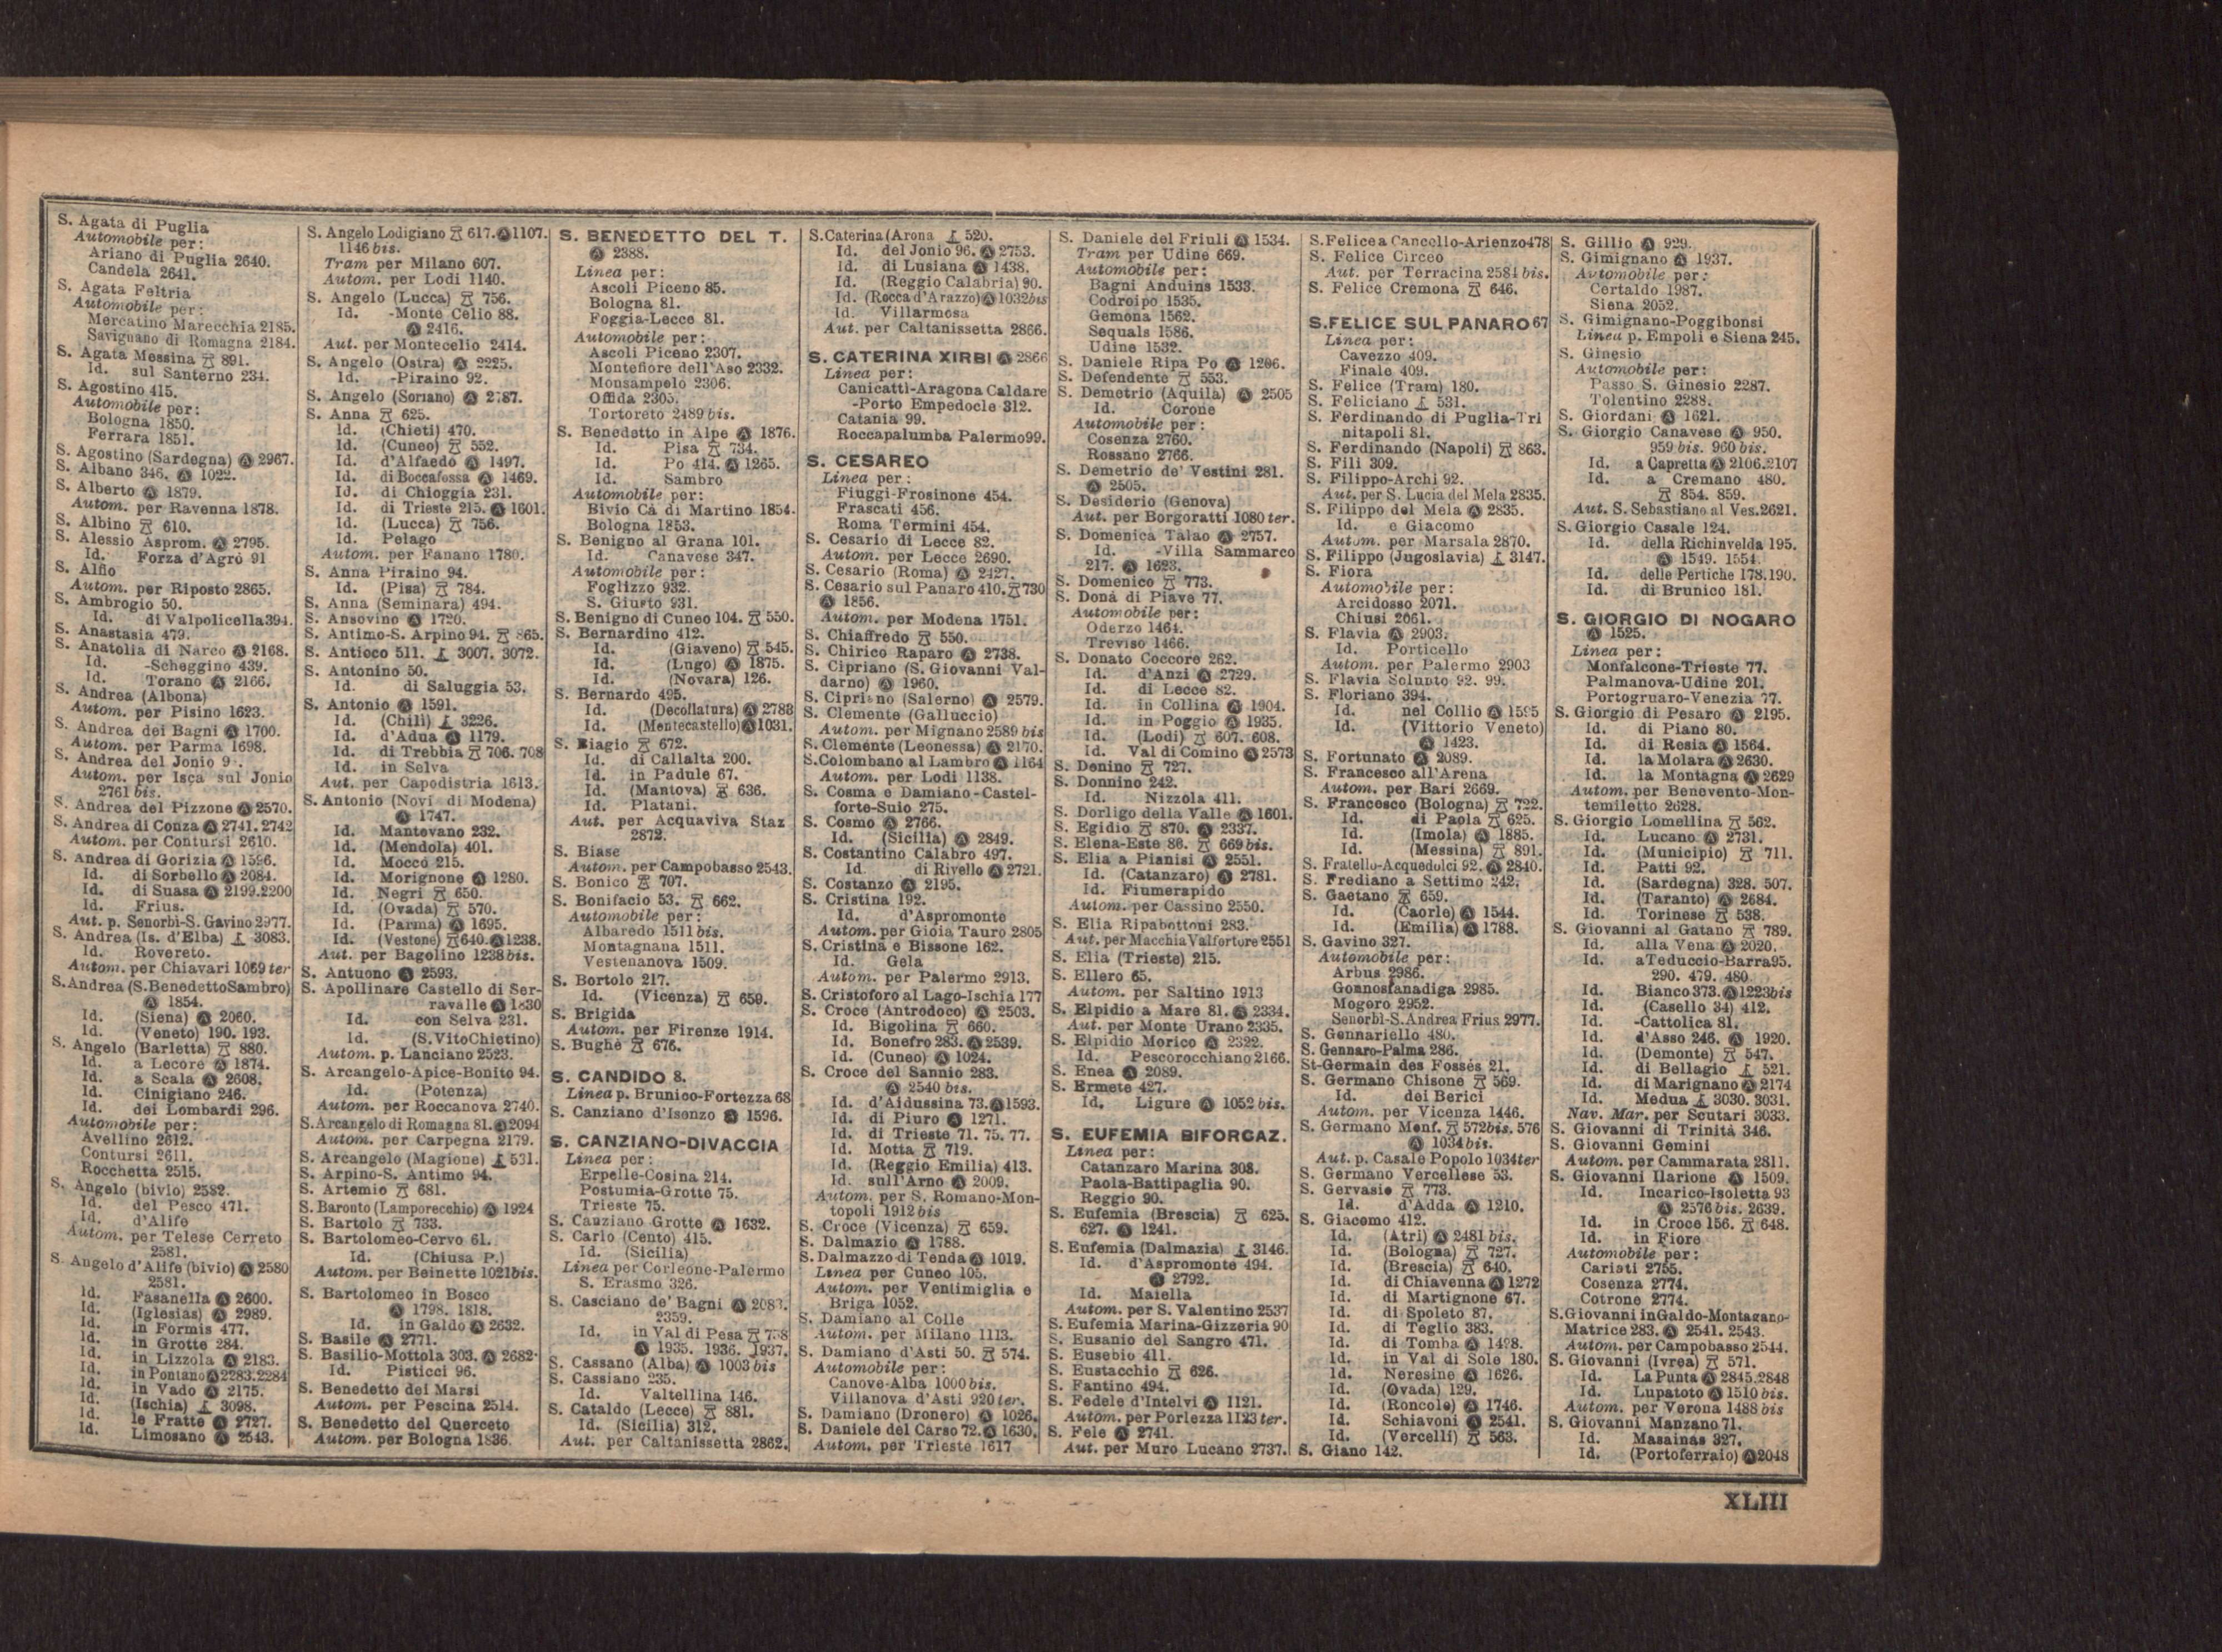 S. Agata di Puglia
Automobile per:
Ariano di Puglia 2640.
Candela 2641.
S. Agata Feltria
Automobile per:
Mercatino Marecchia 2185.
Savignano di Romagna 2184.
S. Agata Messina 891.
Id. sul Santerno 234.
S. Agostino 415.
Automobile per:
Bologna 1850.
Ferrara 1851.
S. Agostino (Sardegna) Ⓐ 2967.
S. Albano 346. Ⓐ 1022.
S. Alberto Ⓐ 1879.
Autom. per Ravenna 1878.
S. Albino 610.
S. Alessio Asprom. Ⓐ 2795.
Id. Forza d'Agrò 91
S. Alfio
Autom. per Riposto 2865.
S. Ambrogio 50.
Id. di Valpolicella 394.
S. Anastasia 479.
S. Anatolia di Narco Ⓐ 2168.
Id. -Scheggino 439.
Id. Torano Ⓐ 2166.
S. Andrea (Albona)
Autom. per Pisino 1623.
S. Andrea dei Bagni Ⓐ 1700.
Autom. per Parma 1698.
S. Andrea del Jonio
Autom. per Isca sul Jonio
2761 bis.
S. Andrea del Pizzone Ⓐ 2570.
S. Andrea di Conza Ⓐ 2741. 2742
Autom. per Contursi 2610.
S. Andrea di Gorizia Ⓐ 1596.
Id. di Sorbello Ⓐ 2084.
Id. di Suasa Ⓐ 2199.2200
Id. Frius.
Aut. p. Senorbì-S. Gavino 2977.
S. Andrea (Is. d'Elba) 3083.
Id. Rovereto.
Autom. per Chiavari 1069 ter
S. Andrea (S. Benedetto Sambro)
Ⓐ 1854.
Id. (Siena) Ⓐ 2060.
Id. (Veneto) 190. 193.
S. Angelo (Barletta) 880.
Id. a Lecore Ⓐ 1874.
Id. a Scala Ⓐ 2608.
Id. Cinigiano 246.
Id. dei Lombardi 296.
Automobile per:
Avellino 2612.
Contursi 2611.
Rocchetta 2515.
S. Angelo (bivio) 2582.
Id. del Pesco 471.
Id. d'Alife
Autom. per Telese Cerreto
2581.
S. Angelo d'Alife (bivio) Ⓐ 2580
2581.
Id. Fasanella Ⓐ 2600.
Id. (Iglesias) Ⓐ 2989.
Id. in Formis 477.
Id. in Grotte 284.
Id. in Lizzola Ⓐ 2183.
Id. in Pontano Ⓐ 2283.2284
Id. in Vado Ⓐ 2175.
Id. (Ischia) 3098.
Id. le Fratte Ⓐ 2727.
Id. Limosano Ⓐ 2543.
S. Angelo Lodigiano 617. Ⓐ 1107.
1146 bis.
Tram per Milano 607.
Autom. per Lodi 1140.
S. Angelo (Lucca) 756.
Id. -Monte Celio 88.
Ⓐ 2416.
Aut. per Montecelio 2414.
S. Angelo (Ostra) Ⓐ 2225.
Id. -Piraino 92.
S. Angelo (Soriano) Ⓐ 2787.
S. Anna 625.
Id. (Chieti) 470.
Id. (Cuneo) 552.
Id. d'Alfaedo Ⓐ 1497.
Id. di Boccafossa Ⓐ 1469.
Id. di Chioggia 231.
Id. di Trieste 215. Ⓐ 1601.
Id. (Lucca) 756.
Id. Pelago
Autom. per Fanano 1780.
S. Anna Piraino 94.
Id. (Pisa) 784.
S. Anna (Seminara) 494.
S. Ansovino Ⓐ 1720.
S. Antimo-S. Arpino 94. 865.
S. Antioco 511. 3007. 3072.
S. Antonino 50.
Id. di Saluggia 53.
S. Antonio Ⓐ 1591.
Id. (Chili) 3226.
Id. d'Adua Ⓐ 1179.
Id. di Trebbia 706. 708
Id. in Selva
Aut. per Capodistria 1613.
S. Antonio (Novi di Modena)
Ⓐ 1747.
Id. Mantovano 232.
Id. (Mendola) 401.
Id. Moccò 215.
Id. Morignone Ⓐ 1280.
Id. Negri 650.
Id. (Ovada) 570.
Id. (Parma) Ⓐ 1695.
Id. (Vestone) 640. Ⓐ 1238.
Aut. per Bagolino 1238 bis.
S. Antuono Ⓐ 2593.
S. Apollinare Castello di Ser-
ravalle Ⓐ 1830
Id. con Selva 231.
Id. (S. Vito Chietino)
Autom. p. Lanciano 2523.
S. Arcangelo-Apice-Bonito 94.
Id. (Potenza)
Autom. per Roccanova 2740.
S. Arcangelo di Romagna 81. Ⓐ 2094
Autom. per Carpegna 2179.
S. Arcangelo (Magione) 531.
S. Arpino-S. Antimo 94.
S. Artemio 681.
S. Baronto (Lamporecchio) Ⓐ 1924
S. Bartolo 733.
S. Bartolomeo-Cervo 61.
Id. (Chiusa P.)
Autom. per Beinette 1021 bis.
S. Bartolomeo in Bosco
Ⓐ 1798. 1818.
Id. in Galdo Ⓐ 2632.
S. Basile Ⓐ 2771.
S. Basilio-Mottola 303. Ⓐ 2682.
Id. Pisticci 96.
S. Benedetto dei Marsi
Autom. per Pescina 2514.
S. Benedetto del Querceto
Autom. per Bologna 1836
S. BENEDETTO DEL T.
Ⓐ 2388.
Linea per:
Ascoli Piceno 85.
Bologna 81.
Foggia-Lecce 81.
Automobile per:
Ascoli Piceno 2307.
Montefiore dell'Aso 2332.
Monsampolo 2306.
Offida 2305.
Tortoreto 2489 bis.
S. Benedetto in Alpe Ⓐ 1876.
Id. Pisa 734.
Id. Po 414. Ⓐ 1265.
Id. Sambro
Automobile per:
Bivio Cà di Martino 1854.
Bologna 1853.
S. Benigno al Grana 101.
Id. Canavese 347.
Automobile per:
Foglizzo 932.
S. Giusto 931.
S. Benigno di Cuneo 104. 550.
S. Bernardino 412.
Id. (Giaveno) 545.
Id. (Lugo) Ⓐ 1875.
Id. (Novara) 126.
S. Bernardo 495.
Id. (Decollatura) Ⓐ 2783
Id. (Montecastello) Ⓐ 1031.
S. Biagio 672.
Id. di Callalta 200.
Id. in Padule 67.
Id. (Mantova) 636.
Id. Platani.
Aut. per Acquaviva Staz
2872.
S. Biase
Autom. per Campobasso 2543.
S. Bonico 707.
S. Bonifacio 53. 662.
Automobile per:
Albaredo 1511 bis.
Montagnana 1511.
Vestenanova 1509.
S. Bortolo 217.
Id. (Vicenza) 659.
S. Brigida
Autom. per Firenze 1914.
S. Bughè 676.
S. CANDIDO 8.
Linea p. Brunico-Fortezza 68
S. Canziano d'Isonzo Ⓐ 1596.
S. CANZIANO-DIVACCIA
Linea per:
Erpelle-Cosina 214.
Postumia-Grotte 75.
Trieste 75.
S. Canziano Grotte Ⓐ 1632.
S. Carlo (Cento) 415.
Id. (Sicilia)
Linea per Corleone-Palermo
S. Erasmo 326.
S. Casciano de' Bagni Ⓐ 2083.
2359.
Id. in Val di Pesa 738
Ⓐ 1935. 1936. 1937.
S. Cassano (Alba) Ⓐ 1003 bis
S. Cassiano 235.
Id. Valtellina 146.
S. Cataldo (Lecce) 881.
Id. (Sicilia) 312.
Aut. per Caltanissetta 2862.
S. Caterina (Arona 520.
Id. del Jonio 96. Ⓐ 2753.
Id. di Lusiana Ⓐ 1438.
Id. (Reggio Calabria) 90.
Id. (Rocca d'Arazzo) Ⓐ 1032 bis
Id. Villarmosa
Aut. per Caltanissetta 2866.
S. CATERINA XIRBI Ⓐ 2866
Linea per:
Canicattì-Aragona Caldare
-Porto Empedocle 312.
Catania 99.
Roccapalumba Palermo 99.
S. CESAREO
Linea per:
Fiuggi-Frosinone 454.
Frascati 456.
Roma Termini 454.
S. Cesario di Lecce 82.
Autom. per Lecce 2690.
S. Cesario (Roma) Ⓐ 2427.
S. Cesario sul Panaro 410. 730
Ⓐ 1856.
Autom. per Modena 1751.
S. Chiaffredo 550.
S. Chirico Raparo Ⓐ 2738.
S. Cipriano (S. Giovanni Val-
darno) Ⓐ 1960.
S. Cipriano (Salerno) Ⓐ 2579.
S. Clemente (Galluccio)
Autom. per Mignano 2589 bis
S. Clemente (Leonessa) Ⓐ 2170.
S. Colombano al Lambro Ⓐ 1164
Autom. per Lodi 1138.
S. Cosma e Damiano-Castel-
forte-Suio 275.
S. Cosmo Ⓐ 2766.
Id. (Sicilia) Ⓐ 2849.
S. Costantino Calabro 497.
Id. di Rivello Ⓐ 2721.
S. Costanzo Ⓐ 2195.
S. Cristina 192.
Id. d'Aspromonte
Autom. per Gioia Tauro 2805
S. Cristina e Bissone 162.
Id. Gela
Autom. per Palermo 2913.
S. Cristoforo al Lago-Ischia 177
S. Croce (Antrodoco) Ⓐ 2503.
Id. Bigolina 660.
Id. Bonefro 283. Ⓐ 2539.
Id. (Cuneo) Ⓐ 1024.
S. Croce del Sannio 283.
Ⓐ 2540 bis.
Id. d'Aidussina 73. Ⓐ 1593.
Id. di Piuro Ⓐ 1271.
Id. di Trieste 71. 75. 77.
Id. Motta 719.
Id. (Reggio Emilia) 413.
Id. sull'Arno Ⓐ 2009.
Autom. per S. Romano-Mon-
topoli 1912 bis
S. Croce (Vicenza) 659.
S. Dalmazio Ⓐ 1788.
S. Dalmazzo di Tenda Ⓐ 1019.
Linea per Cuneo 105.
Autom. per Ventimiglia e
Briga 1052.
S. Damiano al Colle
Autom. per Milano 1113.
S. Damiano d'Asti 50. 574.
Automobile per:
Canove-Alba 1000 bis.
Villanova d'Asti 920 ter.
S. Damiano (Dronero) Ⓐ 1026.
S. Daniele del Carso 72. Ⓐ 1630.
Autom. per Trieste 1617
S. Daniele del Friuli Ⓐ 1534.
Tram per Udine 669.
Automobile per:
Bagni Anduins 1533.
Codroipo 1535.
Gemona 1562.
Sequals 1586.
Udine 1532.
S. Daniele Ripa Po Ⓐ 1206.
S. Defendente 553.
S. Demetrio (Aquila) Ⓐ 2505
Id. Corone
Automobile per:
Cosenza 2760.
Rossano 2766.
S. Demetrio de' Vestini 281.
Ⓐ 2505.
S. Desiderio (Genova)
Aut. per Borgoratti 1080 ter.
S. Domenica Talao Ⓐ 2757.
Id. -Villa Sammarco
217. Ⓐ 1623.
S. Domenico 773.
S. Donà di Piave 77.
Automobile per:
Oderzo 1464.
Treviso 1466.
S. Donato Coccore 262.
Id. d'Anzi Ⓐ 2729.
Id. di Lecce 82.
Id. in Collina Ⓐ 1904.
Id. in Poggio Ⓐ 1935.
Id. (Lodi) 607. 608.
Id. Val di Comino Ⓐ 2573
S. Denino 727.
S. Donnino 242.
Id. Nizzola 411.
S. Dorligo della Valle Ⓐ 1601.
S. Egidio 870. Ⓐ 2337.
S. Elena-Este 86. 669 bis.
S. Elia a Pianisi Ⓐ 2551.
Id. (Catanzaro) Ⓐ 2781.
Id. Fiumerapido
Autom. per Cassino 2550.
S. Elia Ripabottoni 283.
Aut. per Macchia Valfortore 2551
S. Elia (Trieste) 215.
S. Ellero 65.
Autom. per Saltino 1913
S. Elpidio a Mare 81. Ⓐ 2334.
Aut. per Monte Urano 2335.
S. Elpidio Morico Ⓐ 2322.
Id. Pescorocchiano 2166.
S. Enea Ⓐ 2089.
S. Ermete 427.
Id. Ligure Ⓐ 1052 bis.
S. EUFEMIA BIFORCAZ.
Linea per:
Catanzaro Marina 308.
Paola-Battipaglia 90.
Reggio 90.
S. Eufemia (Brescia) 625.
627. Ⓐ 1241.
S. Eufemia (Dalmazia) 3146.
Id. d'Aspromonte 494.
Ⓐ 2792.
Id. Maiella
Autom. per S. Valentino 2537
S. Eufemia Marina-Gizzeria 90
S. Eusanio del Sangro 471.
S. Eusebio 411.
S. Eustacchio 626.
S. Fantino 494.
S. Fedele d'Intelvi Ⓐ 1121.
Autom. per Porlezza 1123 ter.
S. Fele Ⓐ 2741.
Aut. per Muro Lucano 2737.
S. Felice a Cancello-Arienzo 478
S. Felice Circeo
Aut. per Terracina 2584 bis.
S. Felice Cremona 646.
S. FELICE SUL PANARO 67
Linea per:
Cavezzo 409.
Finale 409.
S. Felice (Tram) 180.
S. Feliciano 531.
S. Ferdinando di Puglia-Tri
nitapoli 81.
S. Ferdinando (Napoli) 863.
S. Fili 309.
S. Filippo-Archi 92.
Aut. per S. Lucia del Mela 2835.
S. Filippo del Mela Ⓐ 2835.
Id. e Giacomo
Autom. per Marsala 2870.
S. Filippo (Jugoslavia) 3147.
S. Fiora
Automobile per:
Arcidosso 2071.
Chiusi 2061.
S. Flavia Ⓐ 2903.
Id. Porticello
Autom. per Palermo 2903
S. Flavia Solunto 92. 99.
S. Floriano 394.
Id. nel Collio Ⓐ 1595
Id. (Vittorio Veneto)
Ⓐ 1423.
S. Fortunato Ⓐ 2089.
S. Francesco all'Arena
Autom. per Bari 2669.
S. Francesco (Bologna) 722.
Id. di Paola 625.
Id. (Imola) Ⓐ 1885.
Id. (Messina) 891.
S. Fratello-Acquedolci 92. Ⓐ 2840.
S. Frediano a Settimo 242.
S. Gaetano 659.
Id. (Caorle) Ⓐ 1544.
Id. (Emilia) Ⓐ 1788.
S. Gavino 327.
Automobile per:
Arbus 2986.
Gonnosfanadiga 2985.
Mogoro 2952.
Senorbì-S. Andrea Frius 2977.
S. Gennariello 480.
S. Gennaro-Palma 286.
St-Germain des Fossés 21.
S. Germano Chisone 569.
Id. dei Berici
Autom. per Vicenza 1446.
S. Germano Monf. 572 bis. 576
Ⓐ 1034 bis.
Aut. p. Casale Popolo 1034 ter
S. Germano Vercellese 53.
S. Gervasio 773.
Id. d'Adda Ⓐ 1210.
S. Giacomo 412.
Id. (Atri) Ⓐ 2481 bis.
Id. (Bologna) 727.
Id. (Brescia) 640.
Id. di Chiavenna Ⓐ 1272
Id. di Martignone 67.
Id. di Spoleto 87.
Id. di Teglio 383.
Id. di Tomba Ⓐ 1498.
Id. in Val di Sole 180.
Id. Neresine Ⓐ 1626.
Id. (Ovada) 129.
Id. (Roncole) Ⓐ 1746.
Id. Schiavoni Ⓐ 2541.
Id. (Vercelli) 563.
S. Giano 142.
S. Gillio Ⓐ 929.
S. Gimignano Ⓐ 1937.
Automobile per:
Certaldo 1987.
Siena 2052.
S. Gimignano-Poggibonsi
Linea p. Empoli e Siena 245.
S. Ginesio
Automobile per:
Passo S. Ginesio 2287.
Tolentino 2288.
S. Giordani Ⓐ 1621.
S. Giorgio Canavese Ⓐ 950.
959 bis. 960 bis.
Id. a Capretta Ⓐ 2106.2107
Id. a Cremano 480.
854. 859.
Aut. S. Sebastiano al Ves. 2621.
S. Giorgio Casale 124.
Id. della Richinvelda 195.
Ⓐ 1549. 1554.
Id. delle Pertiche 178.190.
Id. di Brunico 181.
S. GIORGIO DI NOGARO
Ⓐ 1525.
Linea per:
Monfalcone-Trieste 77.
Palmanova-Udine 201.
Portogruaro-Venezia 77.
S. Giorgio di Pesaro Ⓐ 2195.
Id. di Piano 80.
Id. di Resia Ⓐ 1564.
Id. la Molara Ⓐ 2630.
Id. la Montagna Ⓐ 2629
Autom. per Benevento-Mon-
temiletto 2628.
S. Giorgio Lomellina 562.
Id. Lucano Ⓐ 2731.
Id. (Municipio) 711.
Id. Patti 92.
Id. (Sardegna) 328. 507.
Id. (Taranto) Ⓐ 2684.
Id. Torinese 538.
S. Giovanni al Gatano 789.
Id. alla Vena Ⓐ 2020.
Id. a Teduccio-Barra 95.
290. 479. 480
Id. Bianco 373. Ⓐ 1223 bis
Id. (Casello 34) 412.
Id. -Cattolica 81.
Id. d'Asso 246. Ⓐ 1920.
Id. (Demonte) 547.
Id. di Bellagio 521.
Id. di Marignano Ⓐ 2174
Id. Medua 3030. 3031.
Nav. Mar. per Scutari 3033.
S. Giovanni di Trinità 346.
S. Giovanni Gemini
Autom. per Cammarata 2811.
S. Giovanni Ilarione Ⓐ 1509.
Id. Incarico-Isoletta 93
Ⓐ 2576 bis. 2639.
Id. in Croce 156. 648.
Id. in Fiore
Automobile per:
Cariati 2755.
Cosenza 2774.
Cotrone 2774.
S. Giovanni in Galdo-Montagano-
Matrice 283. Ⓐ 2541. 2543.
Autom. per Campobasso 2544.
S. Giovanni (Ivrea) 571.
Id. La Punta Ⓐ 2845.2848
Id. Lupatoto Ⓐ 1510 bis.
Autom. per Verona 1488 bis
S. Giovanni Manzano 71.
Id. Masainas 327.
Id. (Portoferraio) Ⓐ 2048
XLIII